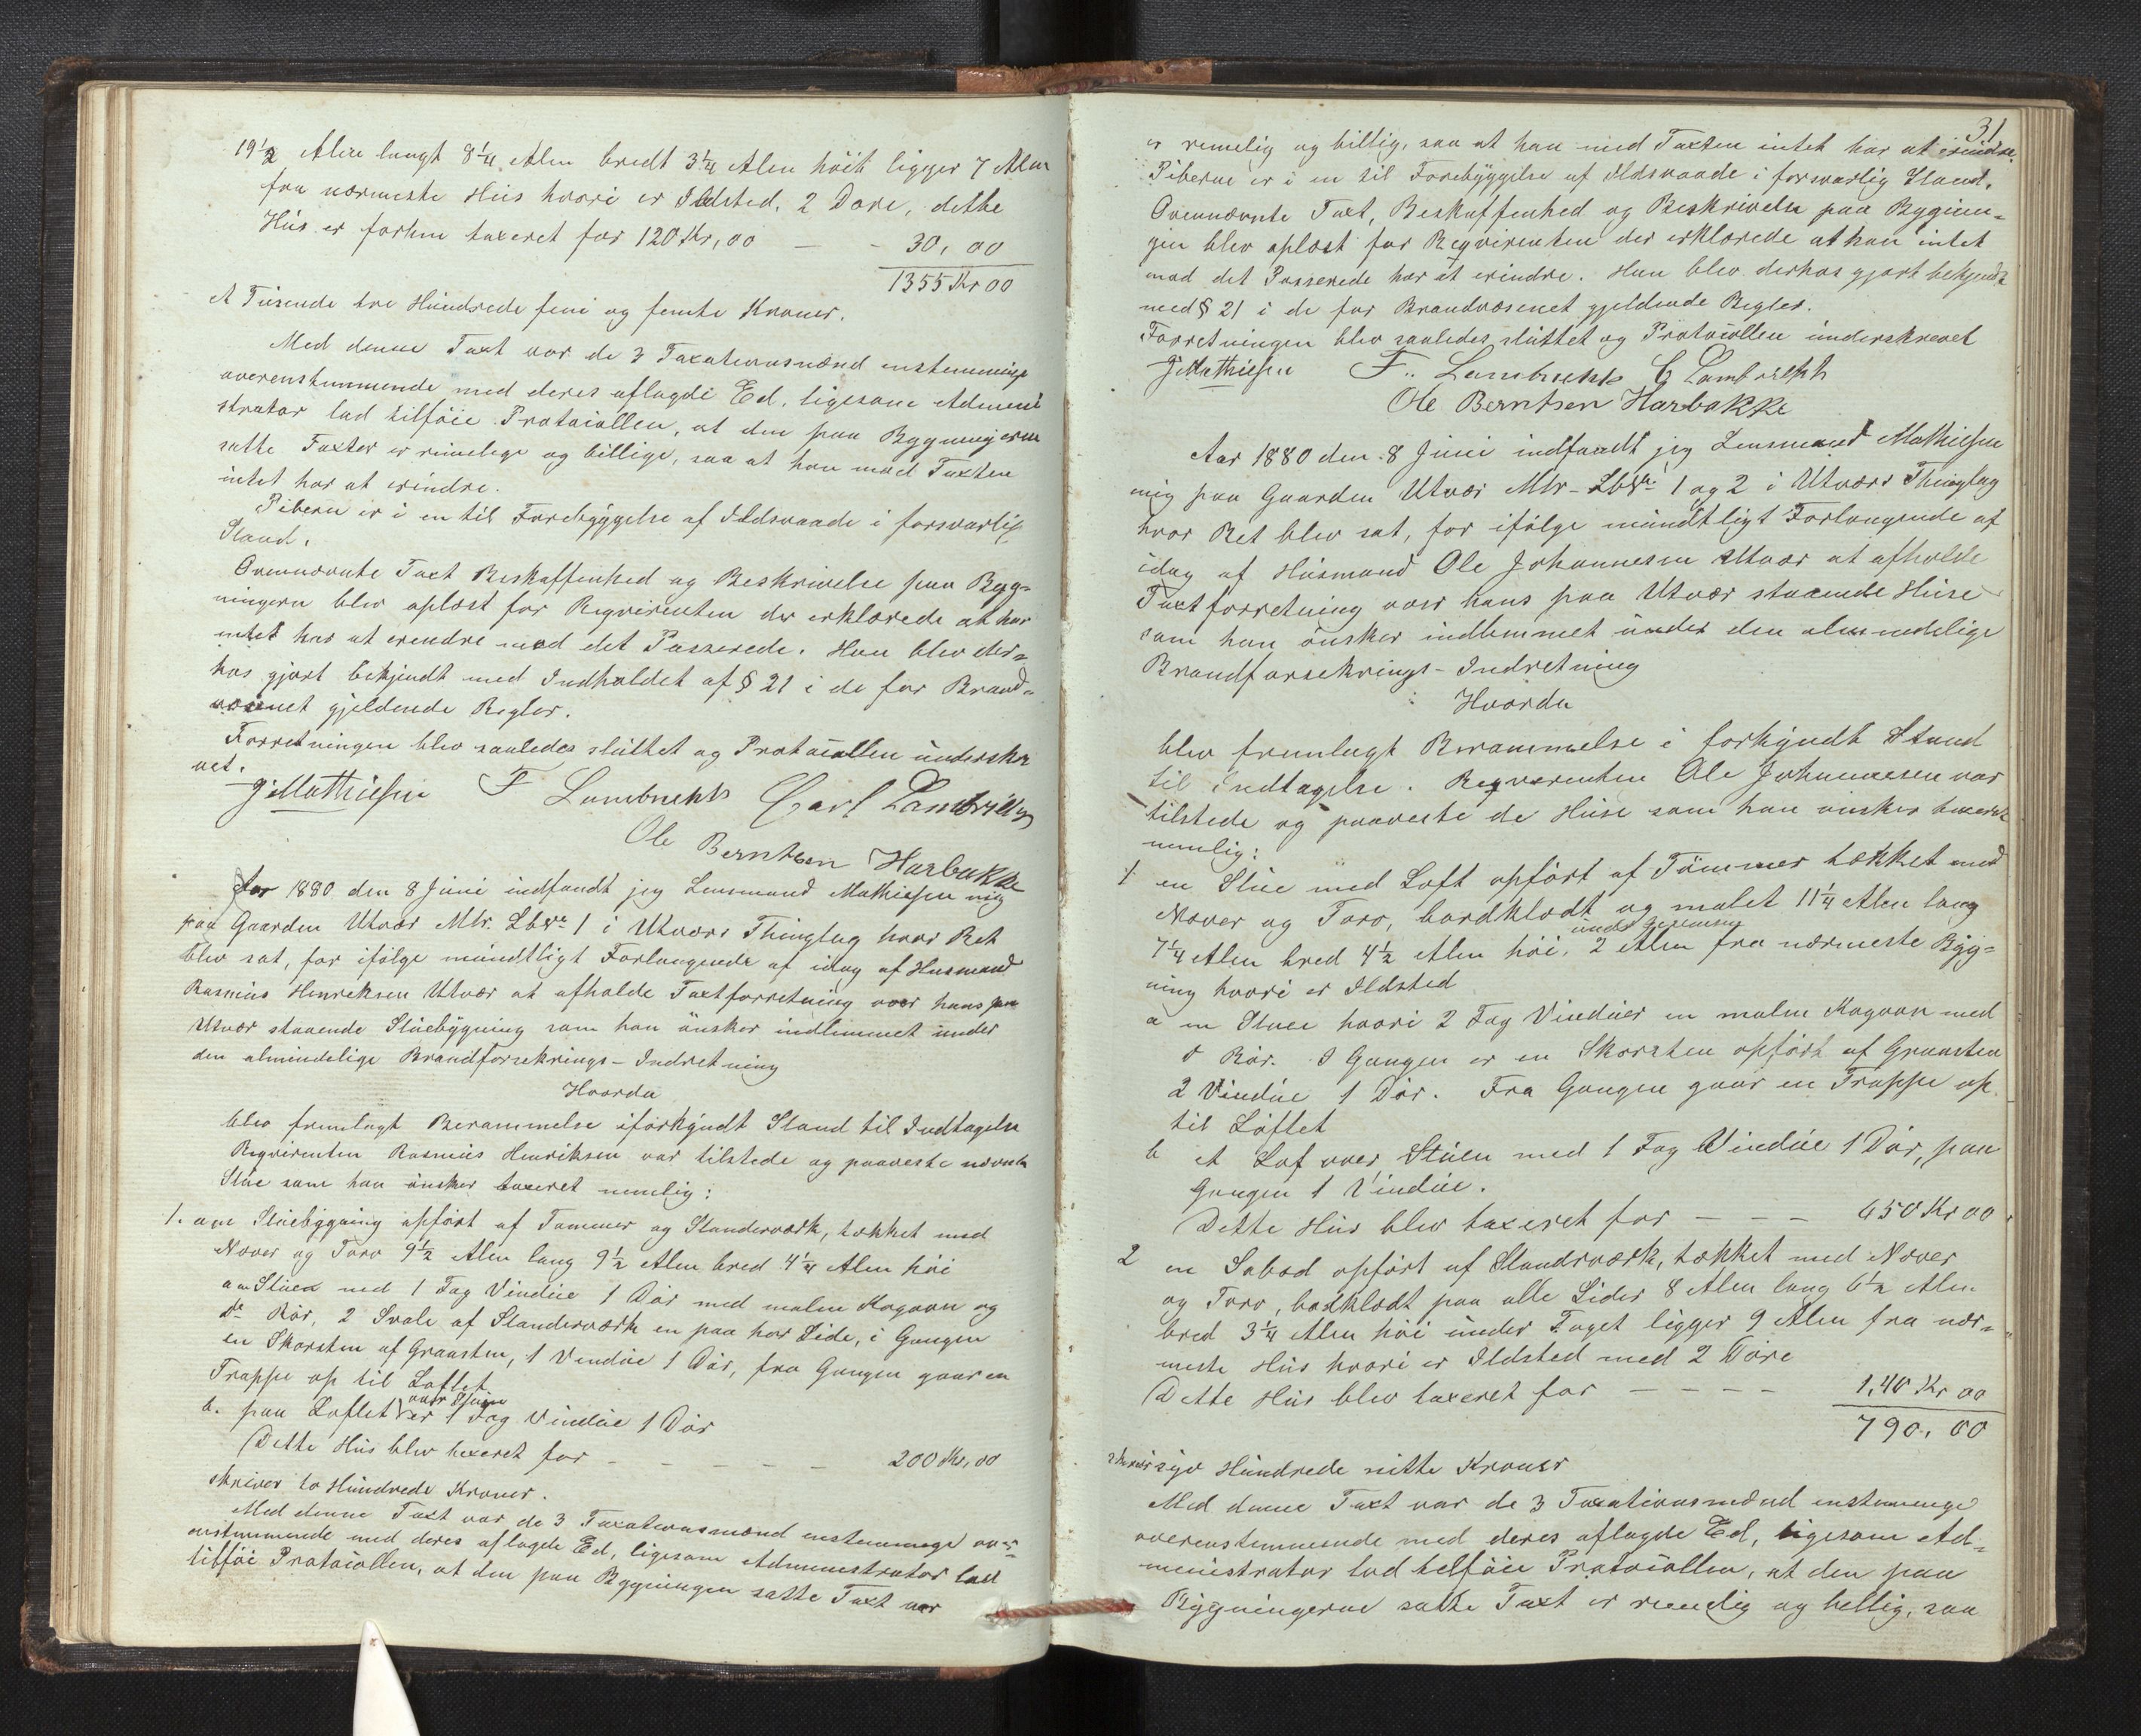 19½ Alen langt 8¼ Alen bredt 3¼ Alen höit ligger 7 Alen
fra nærmeste Hus hvori er Ildsted, 2 Döre, dette
Hus er forhen taxeret for 120 Kr, 00 — - 30, 00
1355 Kr 00
Et Tusende tre Hundrede fem og femte Kroner.
Med denne Taxt var de 3 Taxationsmænd enstemmige
overenstemmende med deres aflagdi Ed, ligesom Admini
strator lod tilföie Protocollen, at den paa Bygningerne
satte Taxter er rimelige og billige, saa at han mod Taxten
intet har at erindre.
Piberne er i en til Forebyggelse af Ildsvaade i forsvarlig
Stand.
Ovennævnte Taxt Beskaffenhed og Beskrivelse paa Byg=
ningern blev oplæst for Reqvirenten der erklærede at han
intet har at erendre mod det Passerede. Han blev der=
hos gjort bekjendt med Indholdet af § 21 i de for Brand=
væsenet gjeldende Regler.
Forretningen blev saaledes sluttet og Protocollen underskre
vet.
J Mathiesen F Lambrekts Carl Lambrikts
Ole Berntsen Harbakke
Aar 1880 den 8 Juni indfandt jeg Lensmand Mathiesen mig
paa Gaarden Utvær Mtr. Lbno 1 i Utværs Thinglag hvor Ret
blev sat, for ifölge mundtligt Forlangende af idag af Husmand
Rasmus Henreksen Utvær at afholde Taxtforretning over hans paa
Utvær staaende Stuebygning som han önsker indlimmet under
den almindelige Brandforsekrings-Indretning
Hvorda
blev fremlagt Berammelse i forkyndt Stand til Indtagelse
Reqvirenten Rasmus Henriksen var tilstede og paaveste nævnte
Stue som han önsker taxeret nemlig:
1. en Stuebygning opfört af Tömmer og Standerværk, tækket med
Næver og Torv 9½ Alen lang 9½ Alen bred 4¼ Alen höi
a en Stue med 1 Fag Vindue 1 Dör med malm Kogovn og
do Rör, 2 Svale af Standerværk en paa hver Side, i Gangen
en Skorsten af Graasten, 1 Vindue 1 Dör, fra Gangen gaar en
Trappe op til Loftet
b. paa Loftet over Stuen er 1 Fag Vindue 1 Dör
Dette Hus blev taxeret for - - - - - 200 Kr, 00
skriver to Hundrede Kroner.
Med denne Taxt var de 3 Taxationsmænd enstemmege over=
enstemmende med deres aflagde Ed, ligesom Administrator lod
tilföie Protocollen, at den paa Bygningen satte Taxt var
31
er remelig og billig, saa at han med Taxten intet har at erindre
Piberne er i en til Forebyggelse af Ildsvaade i forsvarlig Stand.
Ovennævnte Taxt, Beskaffenhed og Beskrivelse paa Bygnin=
gen blev oplæst for Reqvirenten der erklærede at han intet
mod det Passerede har at erindre. Han blev derhos gjort bekjendt
med § 21 i de for Brandvæsenet gjeldende Regler.
Forretningen blev saaledes sluttet og Protocollen underskrevet
J Mathiesen F. Lambrekts C Lambrekts
Ole Berntsen Harbakke
Aar 1880 den 8 Juni indfandt jeg Lensmand Mathiesen
mig paa Gaarden Utvær Mtr-Lbno 1 og 2 i Utværs Thinglag
hvor Ret blev sat, for ifölge mundtligt Forlangende af
idag af Husmand Ole Johannesen Utvær at afholde
Taxtforretning over hans paa Utvær staaende Huse
som han önsker indlemmet under den almindelige
Brandforsekrings-Indretning
Hvorda
blev fremlagt Berammelse i forkyndt Stand
til Indtagelse. Reqverenten Ole Johannesen var
tilstede og paaveste de Huse som han önsker taxeret
nemlig:
1 en Stue med Loft opfört af Tömmer tækket med
Næver og Torv, bordklædt og malet 11¼ Alen lang
7¼ Alen bred 4½ Alen höi, 2 Alen fra nærmeste Byg=
ning hvori er Ildsted
a en Stue hvori 2 Fag Vinduer en malm Kogovn med
do Rör. I Gangen er en Skorsten opfört af Graasten
2 Vindue 1 Dör. Fra Gangen gaar en Trappe op
til Loftet
b et Lof over Stuen med 1 Fag Vindue 1 Dör, paa
Gangen 1 Vindue.
Dette Hus blev taxeret for — — — 650 Kr 00
2 en Söbod opfört af Standværk, tækket med Næver
og Torv, bordklædt paa alle Sider 8 Alen lang 6½ Alen
bred 3¼ Alen höi under Taget ligger 9 Alen fra nær=
meste Hus hvori er Ildsted med 2 Döre
Dette Hus blev taxeret for — — — — 1,40 Kr 00
790,00
skriver syv Hundrede nitte Kroner
Med denne Taxt var de 3 Taxationsmænd enstemmige
overenstemmende med deres aflagde Ed, ligesom Ad=
ministrator lod telföie Protocollen, at den paa
Bygningerne satte Taxt er remelig og billig, saa